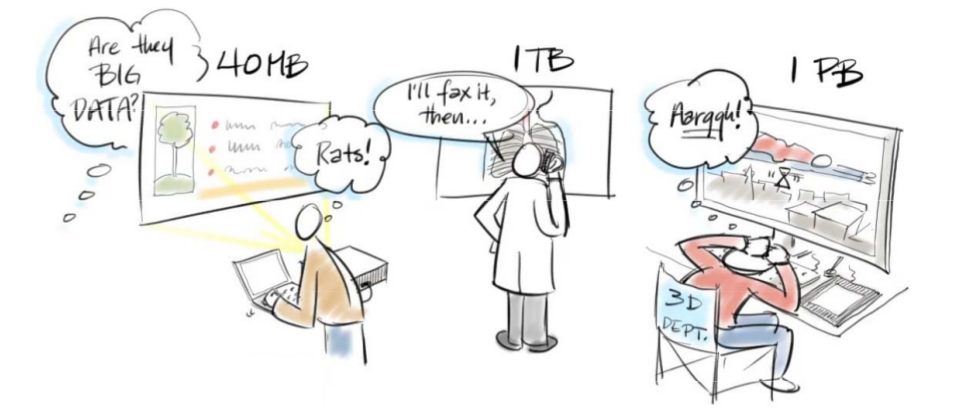 Are they
BIG
DATA?
40MB
Rats!
1 TB
I'll fax it,
then...
1 PB
Aarggh!
3D
DEPT.